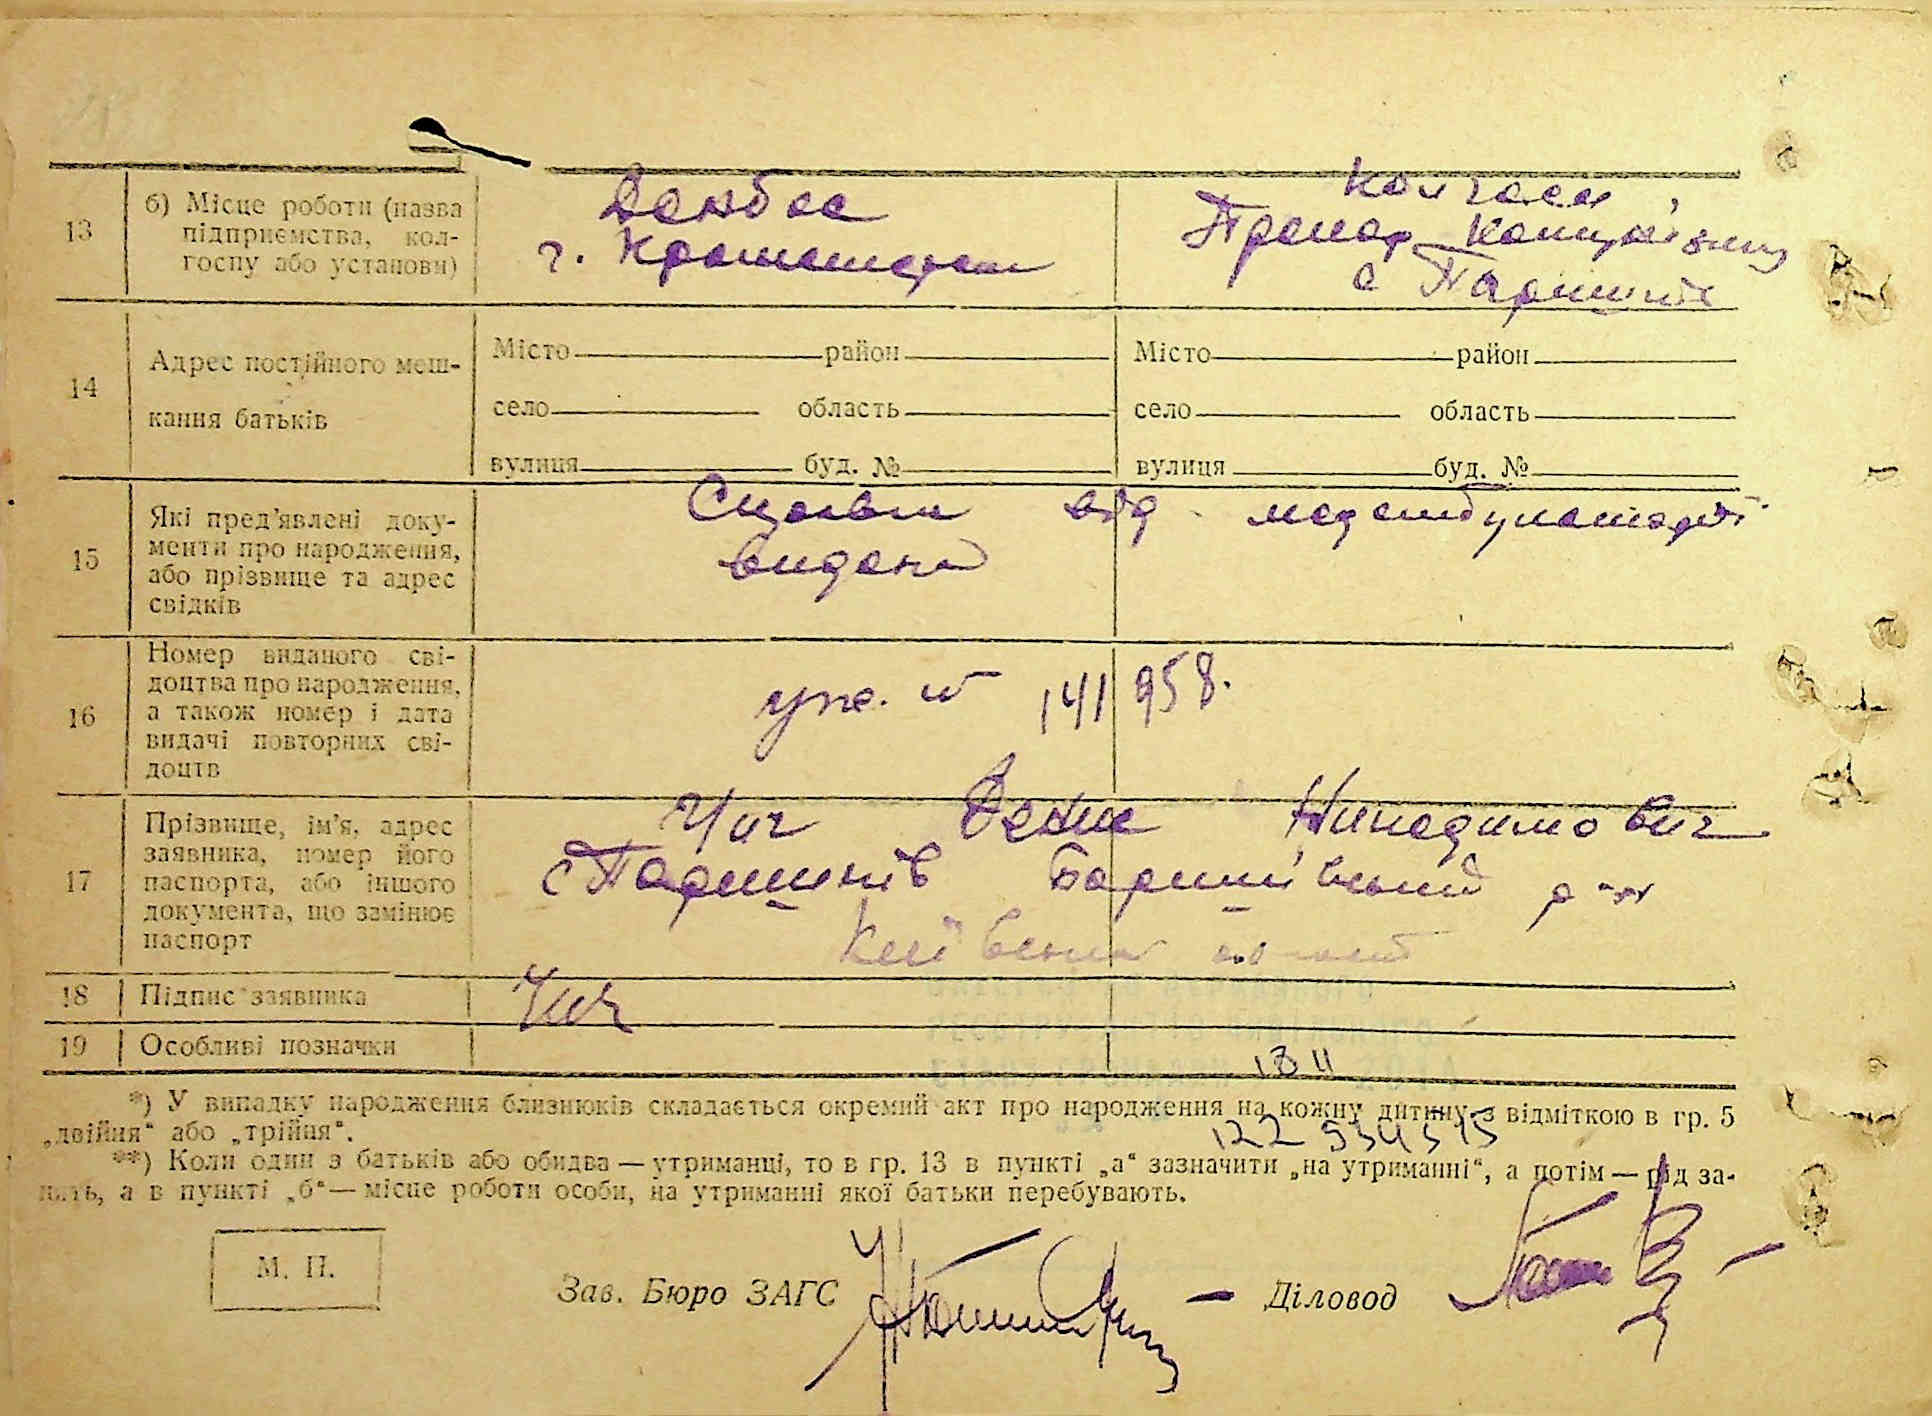 13
б) Місце роботи (назва
підприємства, кол-
госпу або установи)
Донбас
г. Краматорськ
Колгосп
с Паришків
14
Адрес постійного меш-
кання батьків
Місто район
село область
вулиця буд. №
Місто район
село область
вулиця буд. №
15
Які пред'явлені доку-
менти про народження,
або прізвище та адрес
свідків
від
видана
16
Номер виданого сві-
доцтва про народження,
а також номер і дата
видачі повторних сві-
доцтв
№ 141958.
17
Прізвище, ім'я, адрес
заявника, номер його
паспорта, або іншого
документа, що замінює
паспорт
Денис Никодимович
с Паришків Баришівський р-н
Київська область
18
Підпис заявника
19
Особливі позначки
*) У випадку народження близнюків складається окремий акт про народження на кожну дитину з відміткою в гр. 5
„двійня“ або „трійня“.
**) Коли один з батьків або обидва — утриманці, то в гр. 13 в пункті „а“ зазначити „на утриманні“, а потім — рід за-
нять, а в пункті „б“ — місце роботи особи, на утриманні якої батьки перебувають.
М. П.
Зав. Бюро ЗАГС
Діловод